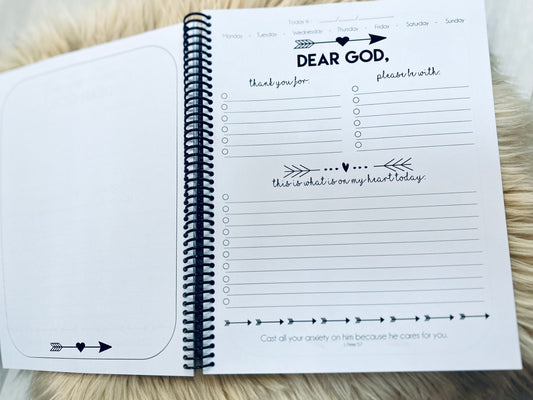 Today is ___/___/___
Monday - Tuesday - Wednesday - Thursday - Friday - Saturday - Sunday
DEAR GOD,
thank you for: please be with:
this is what is on my heart today:
Cast all your anxiety on him because he cares for you.
1 Peter 5:7